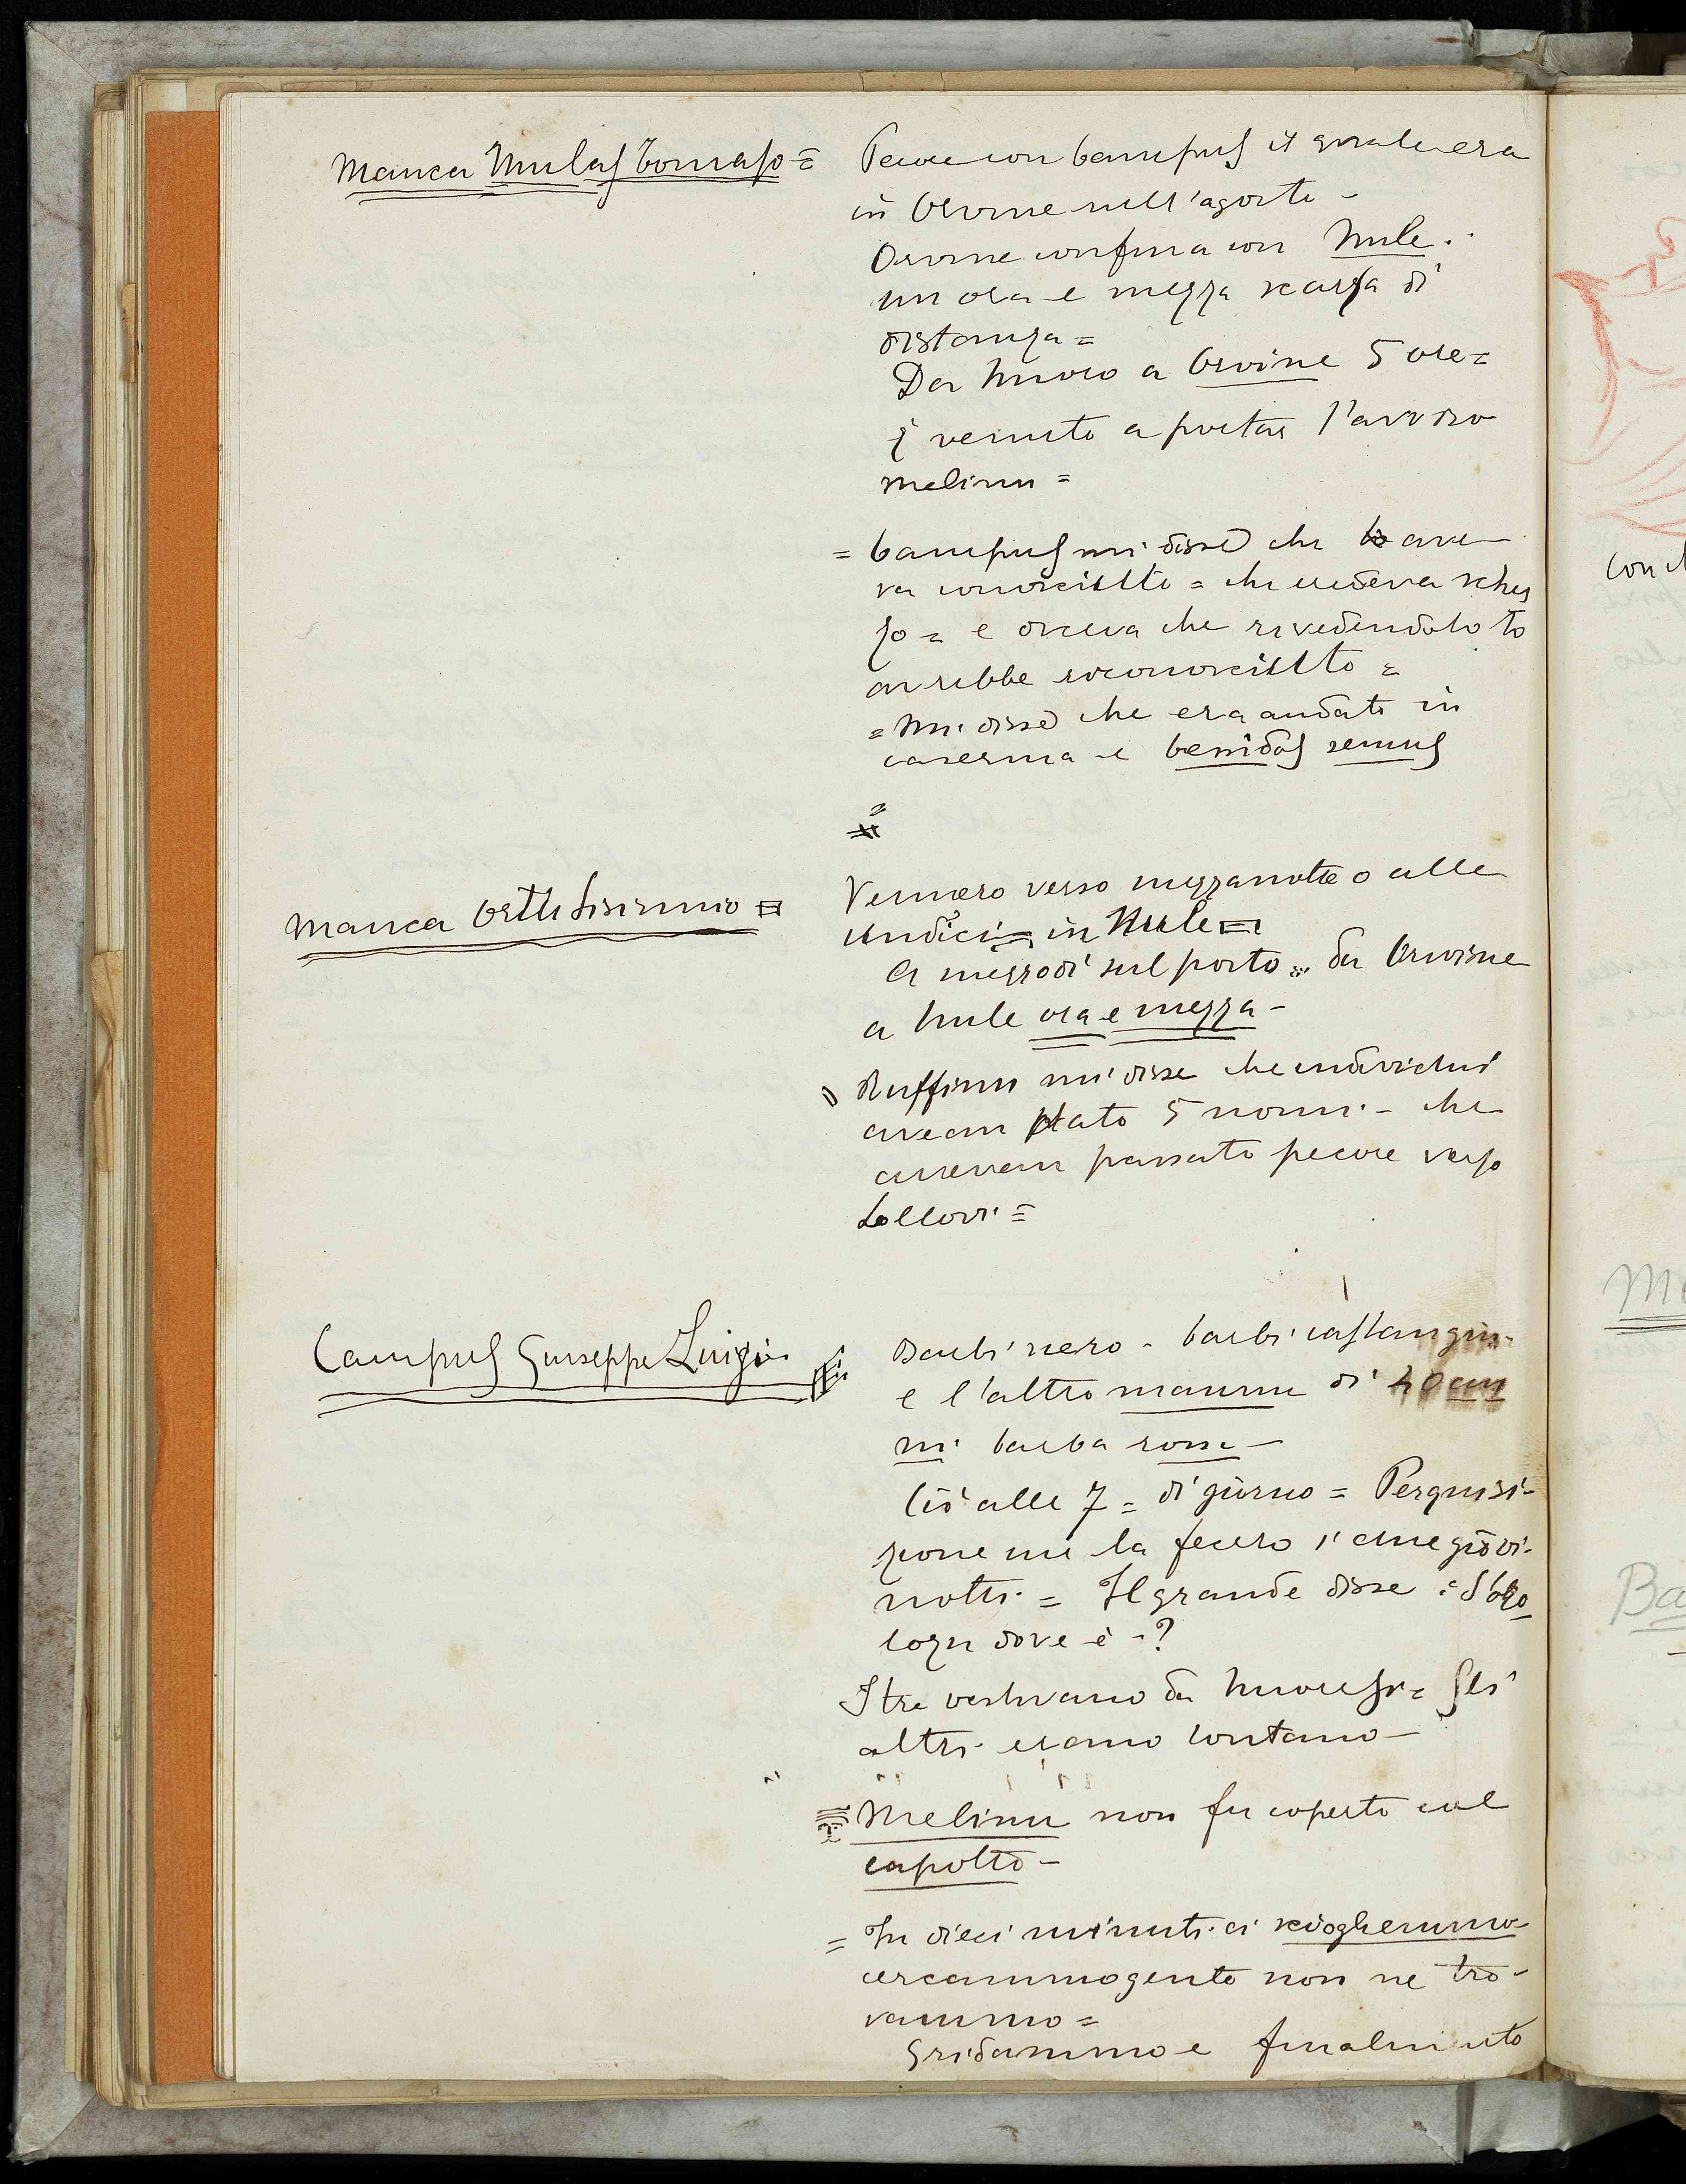 Manca Mulas Tomaso =
Pecore con Campus il quale era
in Orvine nell'agosto -
Orvine confina con Nule.
un ora e mezza scarsa di
distanza =
Da Nuoro a Orvine 5 ore =
È venuto a portar l'avviso
Melinu =
= Campus mi disse che lo ave
va conosciutto = che credeva
e diceva che rivedendolo lo
avrebbe riconosciutto =
= Mi disse che era andato in
caserma e bennidos semus
=
Manca Orttu Sisinnio =
Vennero verso mezzanotte o alle
undici = in Nule =
A mezzodì sul posto = da Orvine
a Nule ora e mezza -
Ruffinu mi disse che individui
avean dato 5 nomi - che
avevan passato pecore verso
Lollovi =
Campus Giuseppe Luigi
Barbi nero - barbi castangiu -
e l'altro mannu di 40 an
ni barba rossa -
Ciò alle 7 = di giorno = Perquisi-
zione me la fecero i due giovi-
notti = Il grande disse :
dove è - ?
I tre vestivano da Nuoresi = Gli
altri erano lontano -
Melinu non fu coperto col
capotto -
= In dieci minuti ci sciogliemmo
cercammo gente non ne tro-
vammo =
Gridammo e finalmente
Con
M
Ba